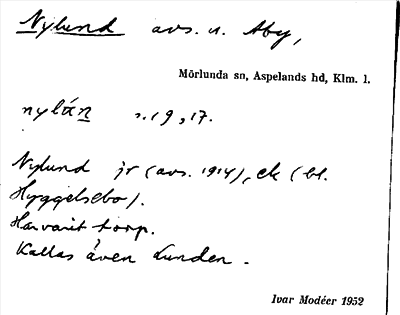 Nylund avs. u. Åby,
Mörlunda sn, Aspelands hd, Klm. l.
nylún s. 19, 17.
Nylund jr (avs. 1914), ek (bl.
Hyggelsebo).
Har varit torp.
Kallas även Lunden.
Ivar Modéer 1952